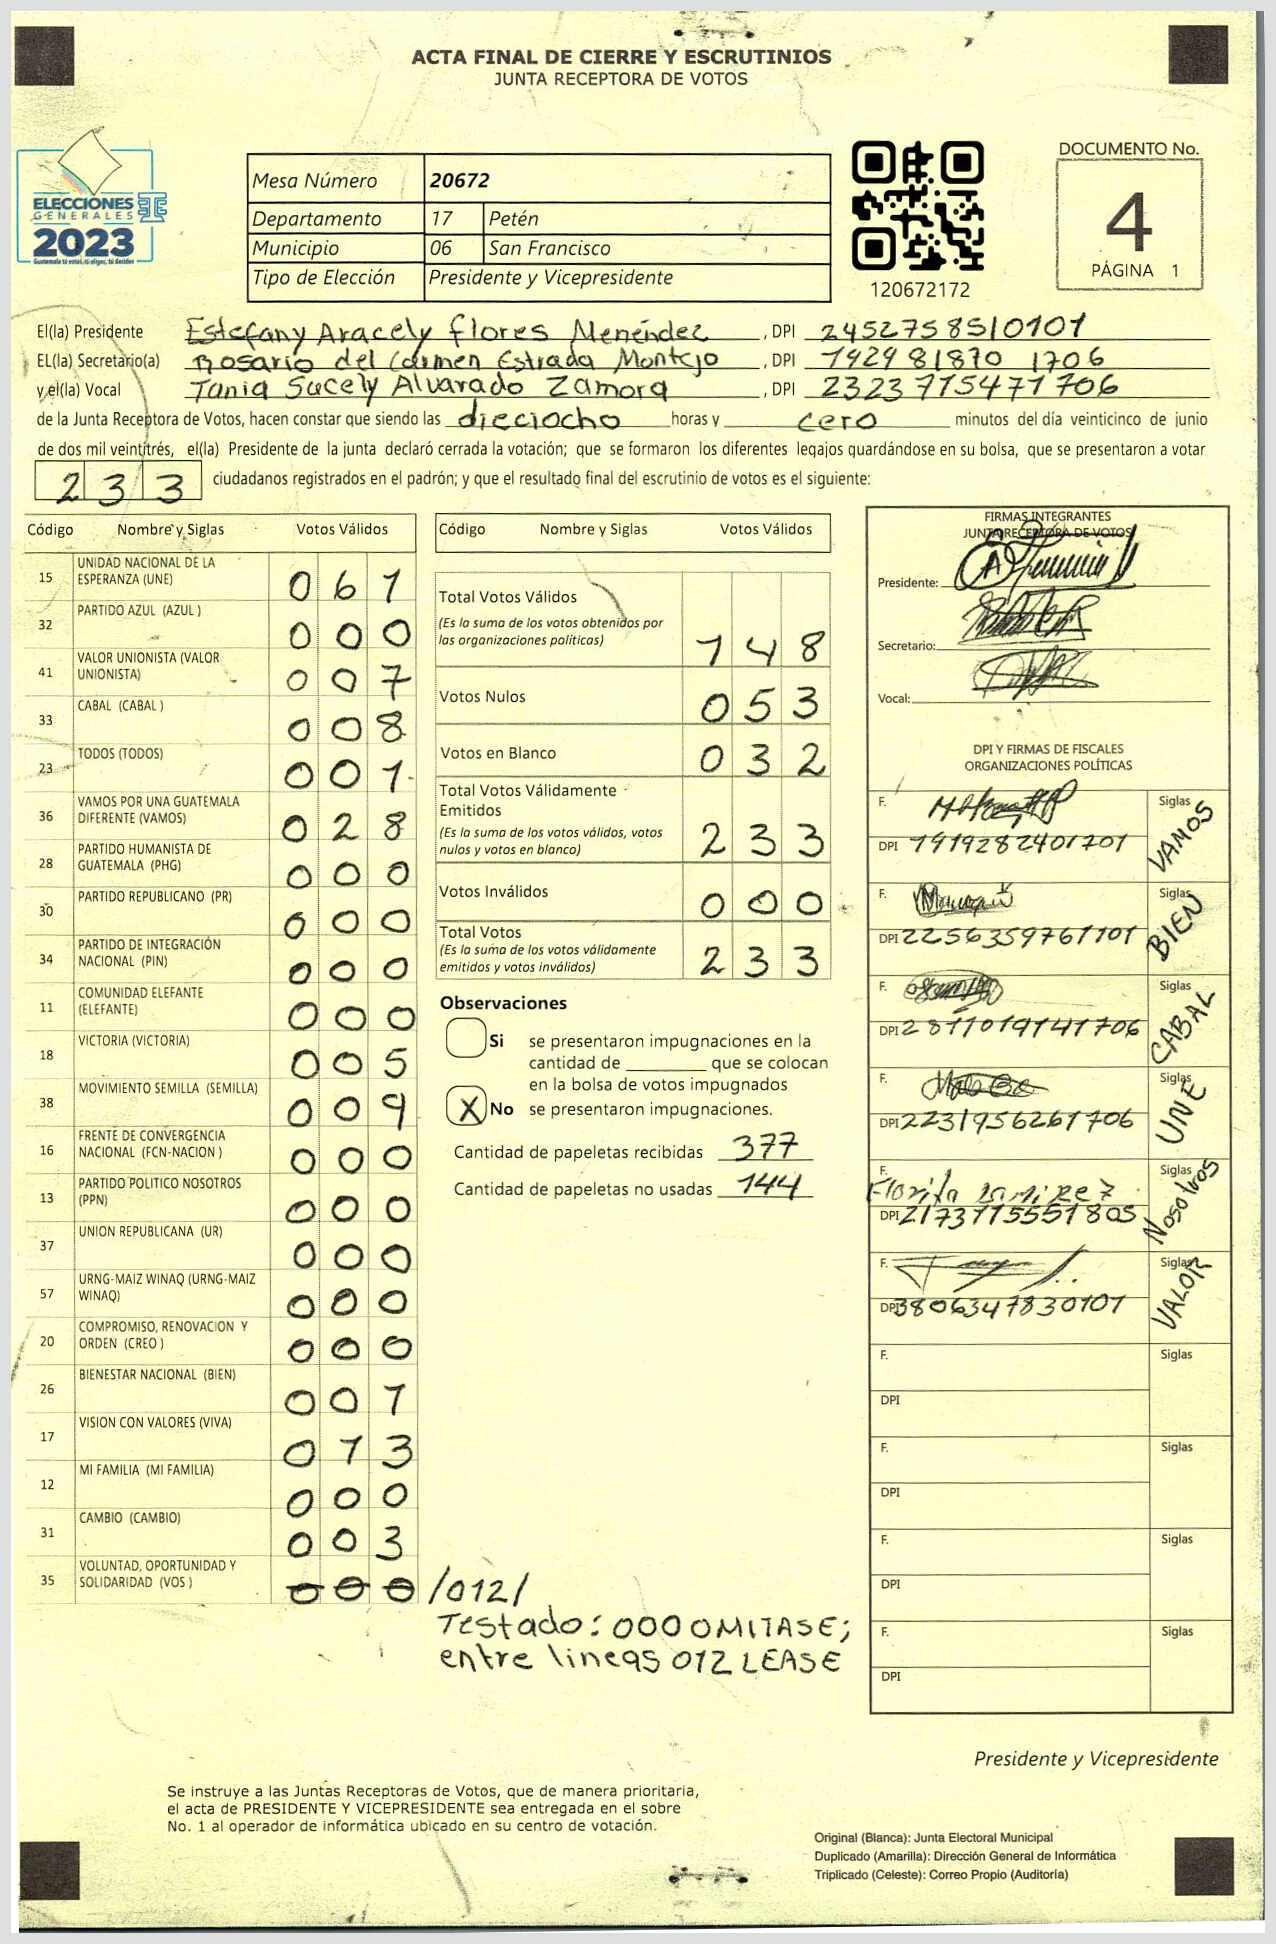 ACTA FINAL DE CIERRE Y ESCRUTINIOS
JUNTA RECEPTORA DE VOTOS
ELECCIONES
GENERALES
2023
Guatemala tú votas, tú eliges, tú decides
Mesa Número 20672
Departamento 17 Petén
Municipio 06 San Francisco
Tipo de Elección Presidente y Vicepresidente
120672172
DOCUMENTO No.
4
PÁGINA 1
El(la) Presidente Estefany Aracely Flores Menéndez, DPI 2452758510101
EL(la) Secretario(a) Rosario del Carmen Estrada Montejo, DPI 1929 81870 1706
y el(la) Vocal Tania Sucely Alvarado Zamora, DPI 2323715471706
de la Junta Receptora de Votos, hacen constar que siendo las dieciocho horas y cero minutos del día veinticinco de junio
de dos mil veintitrés, el(la) Presidente de la junta declaró cerrada la votación; que se formaron los diferentes legajos quardándose en su bolsa, que se presentaron a votar
233 ciudadanos registrados en el padrón; y que el resultado final del escrutinio de votos es el siguiente:
Código Nombre y Siglas Votos Válidos
15 UNIDAD NACIONAL DE LA ESPERANZA (UNE) 061
32 PARTIDO AZUL (AZUL ) 000
41 VALOR UNIONISTA (VALOR UNIONISTA) 007
33 CABAL (CABAL ) 008
23 TODOS (TODOS) 001
36 VAMOS POR UNA GUATEMALA DIFERENTE (VAMOS) 028
28 PARTIDO HUMANISTA DE GUATEMALA (PHG) 000
30 PARTIDO REPUBLICANO (PR) 000
34 PARTIDO DE INTEGRACIÓN NACIONAL (PIN) 000
11 COMUNIDAD ELEFANTE (ELEFANTE) 000
18 VICTORIA (VICTORIA) 005
38 MOVIMIENTO SEMILLA (SEMILLA) 009
16 FRENTE DE CONVERGENCIA NACIONAL (FCN-NACION ) 000
13 PARTIDO POLITICO NOSOTROS (PPN) 000
37 UNION REPUBLICANA (UR) 000
57 URNG-MAIZ WINAQ (URNG-MAIZ WINAQ) 000
20 COMPROMISO, RENOVACION Y ORDEN (CREO ) 000
26 BIENESTAR NACIONAL (BIEN) 001
17 VISION CON VALORES (VIVA) 013
12 MI FAMILIA (MI FAMILIA) 000
31 CAMBIO (CAMBIO) 003
35 VOLUNTAD, OPORTUNIDAD Y SOLIDARIDAD (VOS ) 000 /012/
Testado: 000 OMITASE;
entre lineas 012 LEASE
Código Nombre y Siglas Votos Válidos
Total Votos Válidos
(Es la suma de los votos obtenidos por
las organizaciones políticas) 148
Votos Nulos 053
Votos en Blanco 032
Total Votos Válidamente
Emitidos
(Es la suma de los votos válidos, votos
nulos y votos en blanco) 233
Votos Inválidos 000
Total Votos
(Es la suma de los votos válidamente
emitidos y votos inválidos) 233
Observaciones
Si se presentaron impugnaciones en la
cantidad de ________ que se colocan
en la bolsa de votos impugnados
X No se presentaron impugnaciones.
Cantidad de papeletas recibidas 377
Cantidad de papeletas no usadas 144
FIRMAS INTEGRANTES
JUNTA RECEPTORA DE VOTOS
Presidente:
Secretario:
Vocal:
DPI Y FIRMAS DE FISCALES
ORGANIZACIONES POLÍTICAS
F. Siglas VAMOS
DPI 1919282401701
F. Siglas BIEN
DPI 2256359761101
F. Siglas CABAL
DPI 2811019141706
F. Siglas UNE
DPI 2231956261706
F. Florita Ramirez Siglas Nosotros
DPI 2173715551805
F. Siglas VALOR
DPI 3806347830101
F. Siglas
DPI
F. Siglas
DPI
F. Siglas
DPI
F. Siglas
DPI
Presidente y Vicepresidente
Se instruye a las Juntas Receptoras de Votos, que de manera prioritaria,
el acta de PRESIDENTE Y VICEPRESIDENTE sea entregada en el sobre
No. 1 al operador de informática ubicado en su centro de votación.
Original (Blanca): Junta Electoral Municipal
Duplicado (Amarilla): Dirección General de Informática
Triplicado (Celeste): Correo Propio (Auditoría)